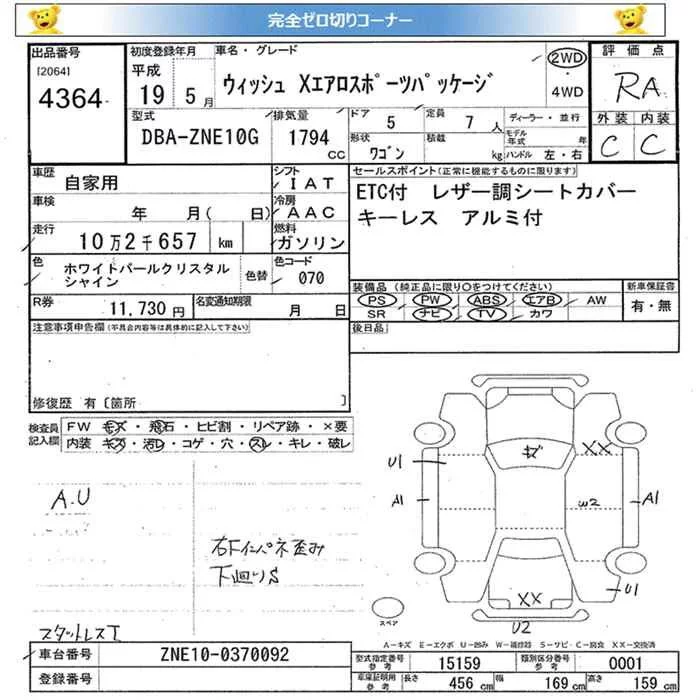 完全ゼロ切りコーナー
出品番号
[2064]
4364
初度登録年月
平成
19 5月
車名・グレード
ウィッシュ Xエアロスポーツパッケージ
2WD
・
4WD
評価点
RA
外装 内装
C C
型式
DBA-ZNE10G
排気量
1794
CC
ドア
5
定員
7人
ディーラー・並行
形状
ワゴン
積載
kg
モデル年式
年
ハンドル 左・右
車歴
自家用
シフト
IAT
車検
年 月( 日)
冷房
AAC
走行
10万2千657 km
燃料
ガソリン
色
ホワイトパールクリスタル
シャイン
色替
色コード
070
R券
11,730円
名変通知期限
月 日
セールスポイント(正常に機能するものに限ります)
ETC付 レザー調シートカバー
キーレス アルミ付
装備品 (純正品に限り○をつけてください)
PS PW ABS エアB AW
SR ナビ TV カワ
新車保証書
有・無
後日品
注意事項申告欄(不具合内容等は具体的に記入して下さい)
修復歴 有〔箇所 〕
検査員
記入欄
FW キズ・飛石・ヒビ割・リペア跡・×要
内装 キズ・汚レ・コゲ・穴・スレ・キレ・破レ
A.U
右下インパネ歪み
下廻りS
スタットレスT
キズ
XX
U1
A1
W2
A1
U1
XX
U2
スペア
A-キズ E-エクボ U-凹み W-補修跡 S-サビ・C-腐食 XX-交換済
車台番号
ZNE10-0370092
登録番号
型式指定番号
参考
15159
類別区分番号
参考
0001
車庫証明用
参考
長さ 456 cm 幅 169 cm 高さ 159 cm